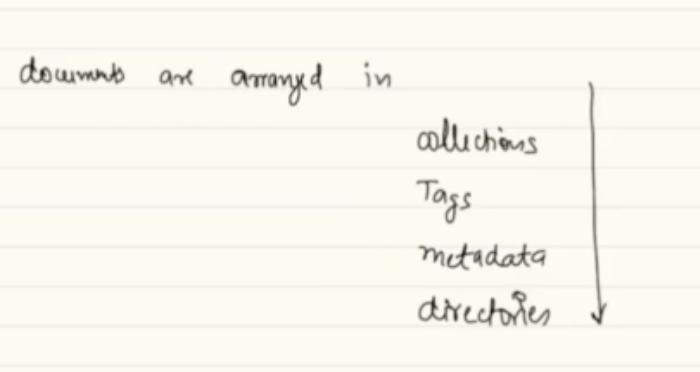 documents are arranged in
collections
Tags
metadata
directories